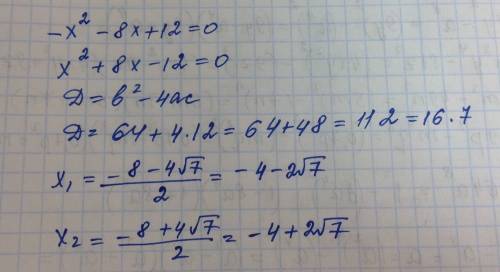 -x² - 8x + 12 = 0
x² + 8x - 12 = 0
D = b² - 4ac
D = 64 + 4·12 = 64 + 48 = 112 = 16·7
x₁ = (-8 - 4√7)/2 = -4 - 2√7
x₂ = (-8 + 4√7)/2 = -4 + 2√7